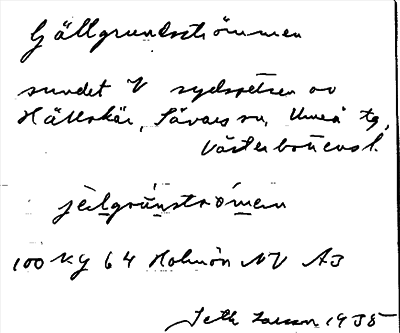 Gällgrundsströmmen
sundet V sydspetsen av
Hällskär, Sävars sn, Umeå tg,
Västerbottens l.
jèlgrúnströ́men
100 Ky 64 Holmön NV A3
Seth Larsson 1935